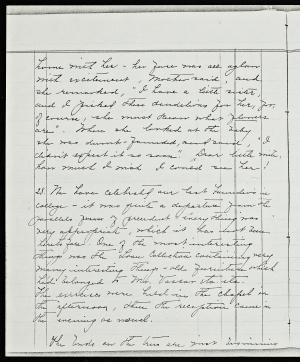 home with her - her face was all aglow
with excitement, Mother said, and
she remarked, "I have a little sister
and I picked these dandelions for her, for,
of course, she must know what flowers
are". When she looked at the baby
she was dumb-founded, and said, "I
didn't expect it so soon". Dear little mite,
how much I wish I could see her!
28. We have celebrated our last Founder's in
college - it was quite a departure from the
Everything was
very appropriate, which it has not been
before. One of the most interesting
things was the Loan Collection containing very
many interesting things - old furniture which
had belonged to Mr. Vassar etc. etc.
The exercises were held in the chapel in
the afternoon, then the reception came in
the evening as usual.
The buds on the trees are just